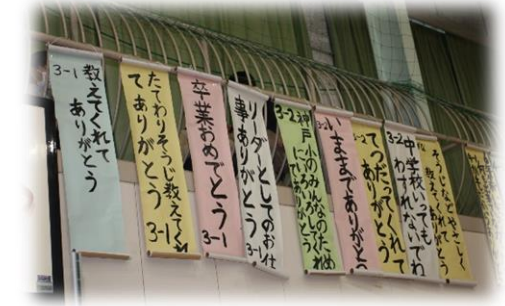 3-1 教えてくれて
ありがとう
たてわりそうじ教えてくれ
てありがとう 3-1
卒業おめでとう
3-1
リーダーとしてのお仕
事ありがとう 3-1
3-2 神戸小のみんなのため
にありがとう
ままでありがとう
てつだってくれて
ありがとう
3-2 中学校いっても
わすれないでね
そうじなどやさしく
教えてくれて
ありがとう